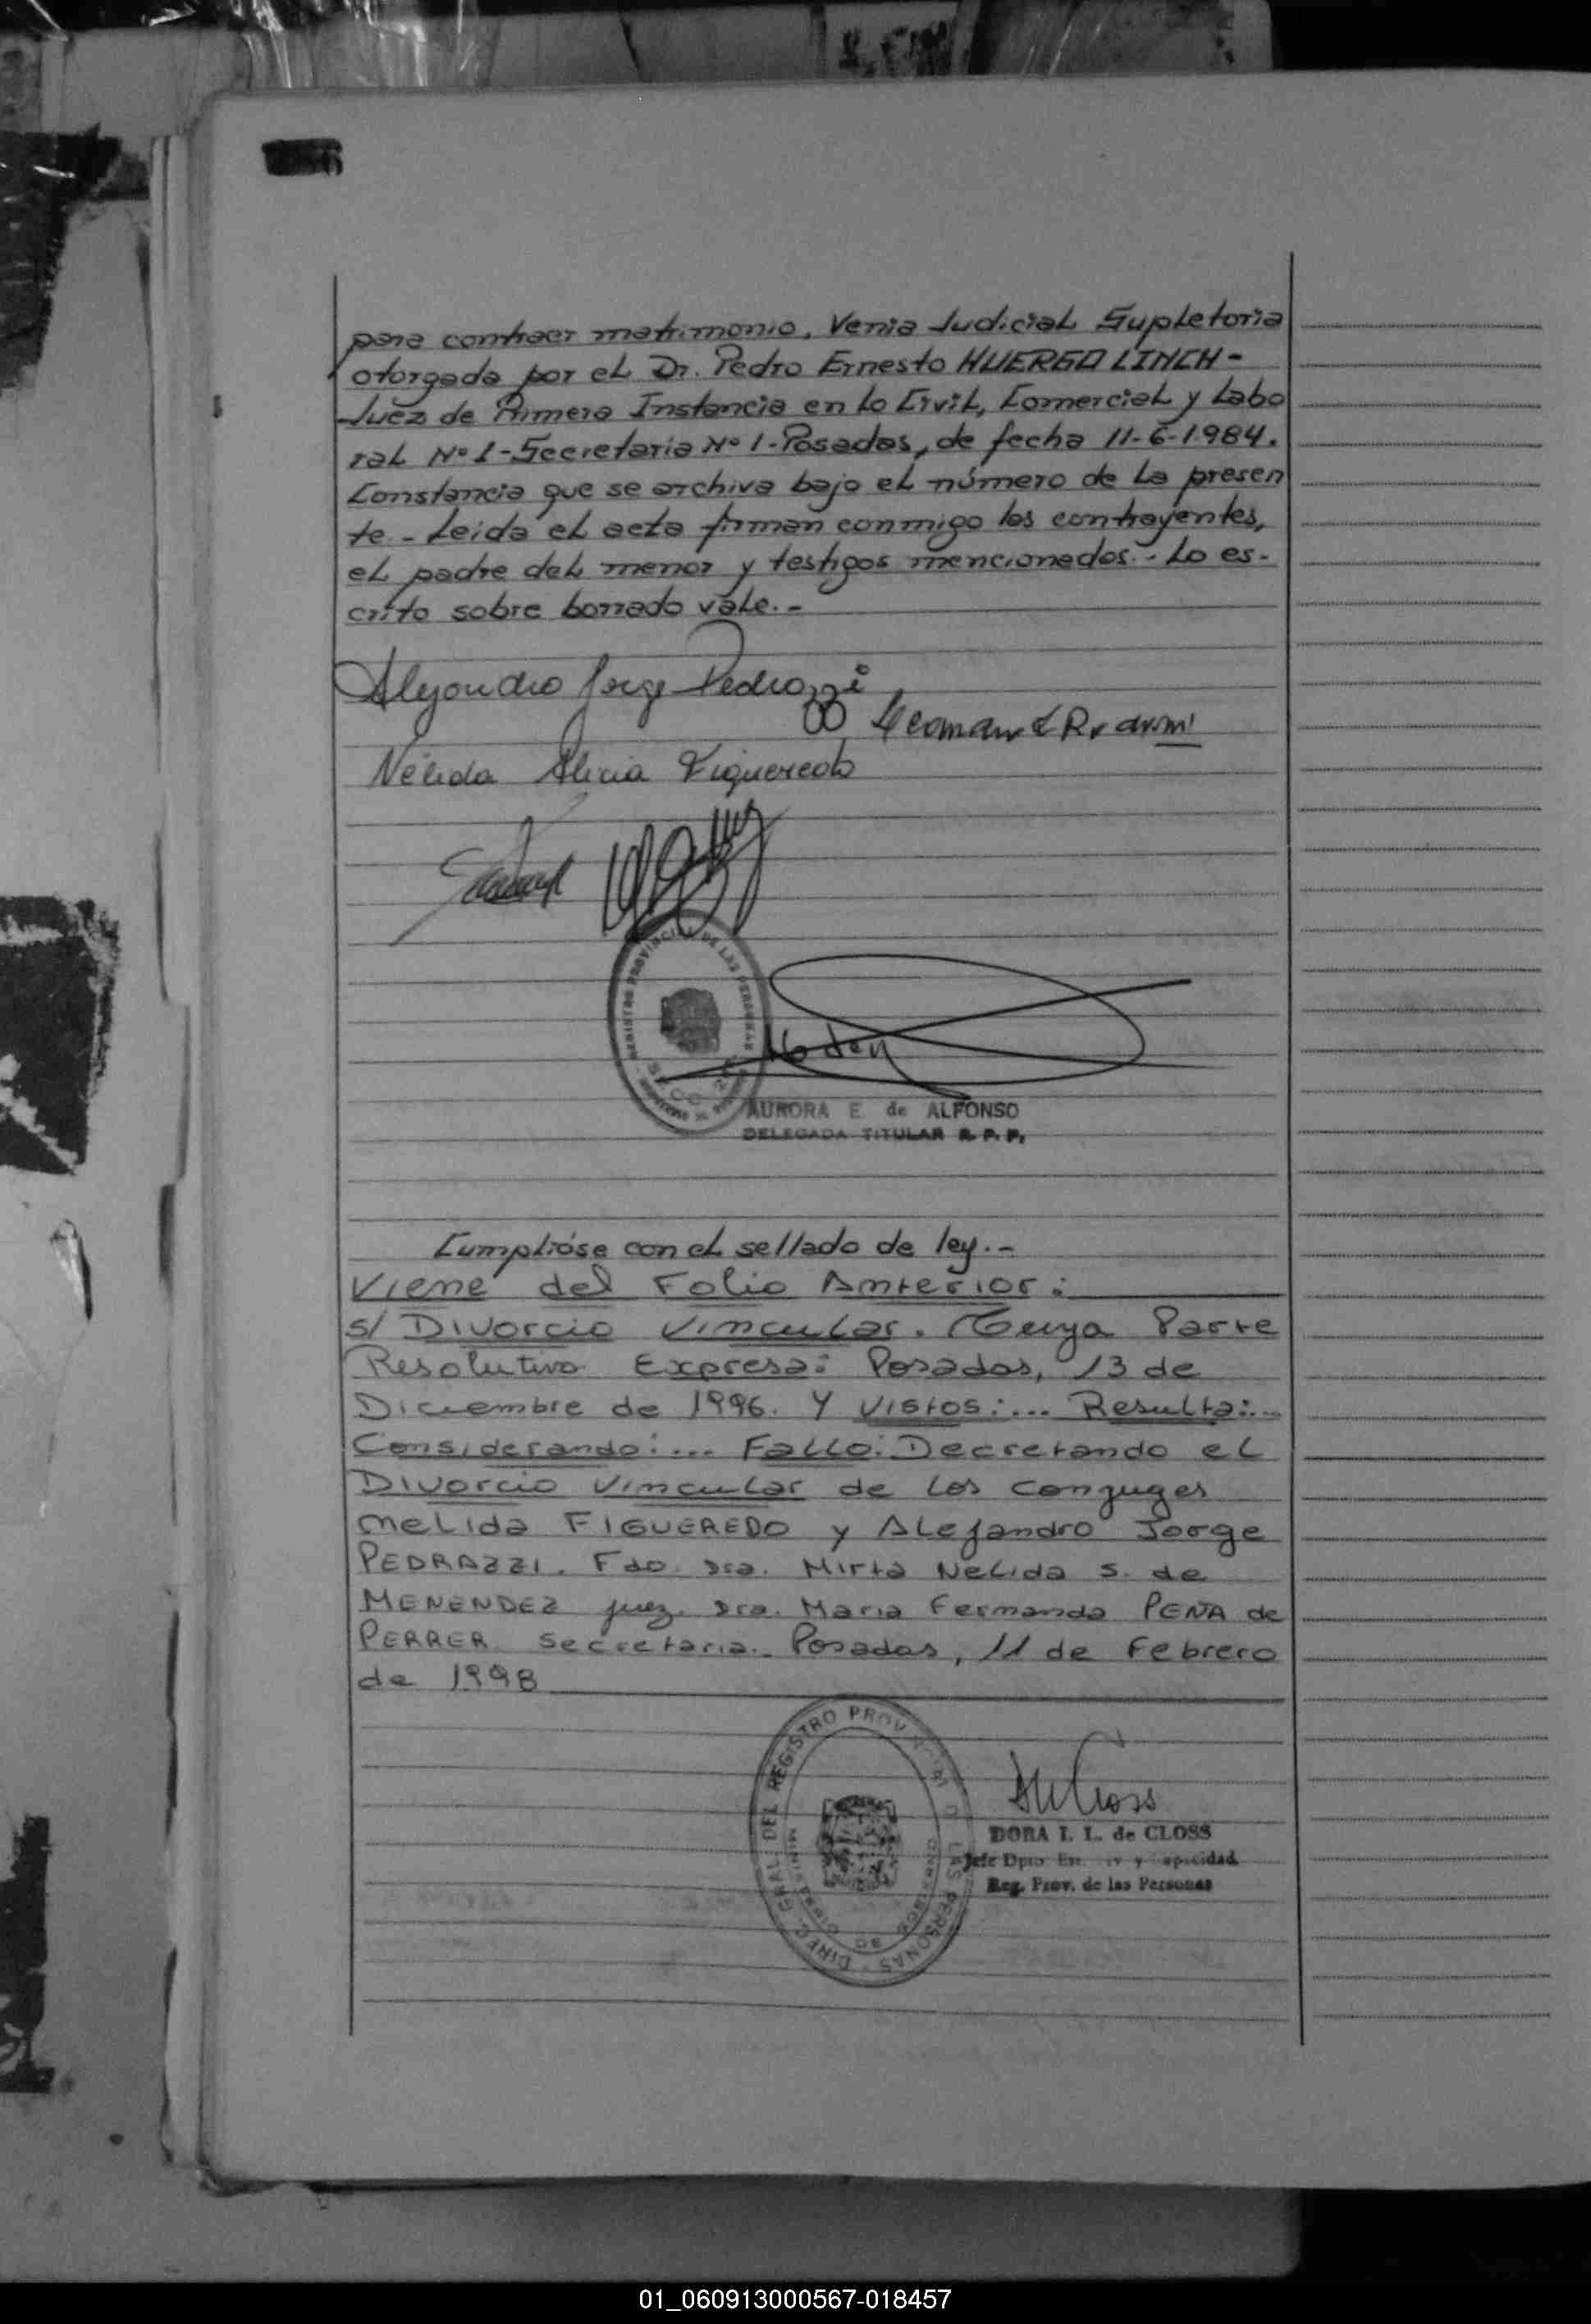 para contraer matrimonio. Venia Judicial Supletoria
otorgada por el Dr. Pedro Ernesto HUERGO LINCH-
Juez de Primera Instancia en lo Civil, Comercial y Labo
ral Nº 1-Secretaria Nº 1-Posadas, de fecha 11-6-1984.
Constancia que se archiva bajo el número de la presen
te.- Leida el acta firman conmigo los contrayentes,
el padre del menor y testigos mencionados.- Lo es-
crito sobre borrado vale.-
Alejandro Jorge Pedrazzi
Nélida Alicia Figueredo
REGISTRO PROVINCIAL DE LAS PERSONAS
AURORA E. de ALFONSO
DELEGADA TITULAR R. P. P.
Cumplióse con el sellado de ley.-
Viene del Folio Anterior:
s/ Divorcio Vincular. Cuya Parte
Resolutiva Expresa: Posadas, 13 de
Diciembre de 1996. Y Vistos:... Resulta:...
Considerando:... Fallo: Decretando el
Divorcio Vincular de los conyuges
Melida FIGUEREDO y Alejandro Jorge
PEDRAZZI. Fdo. Dra. Mirta Nelida S. de
MENENDEZ juez. Dra. Maria Fernanda PEÑA de
PERRER Secretaria.- Posadas, 11 de Febrero
de 1998
DIREC. GRAL. DEL REGISTRO PROVINCIAL DE LAS PERSONAS
MINISTERIO DE GOBIERNO
DORA I. L. de CLOSS
Jefe Dpto. Est. Civ y Capacidad
Reg. Prov. de las Personas
01_060913000567-018457